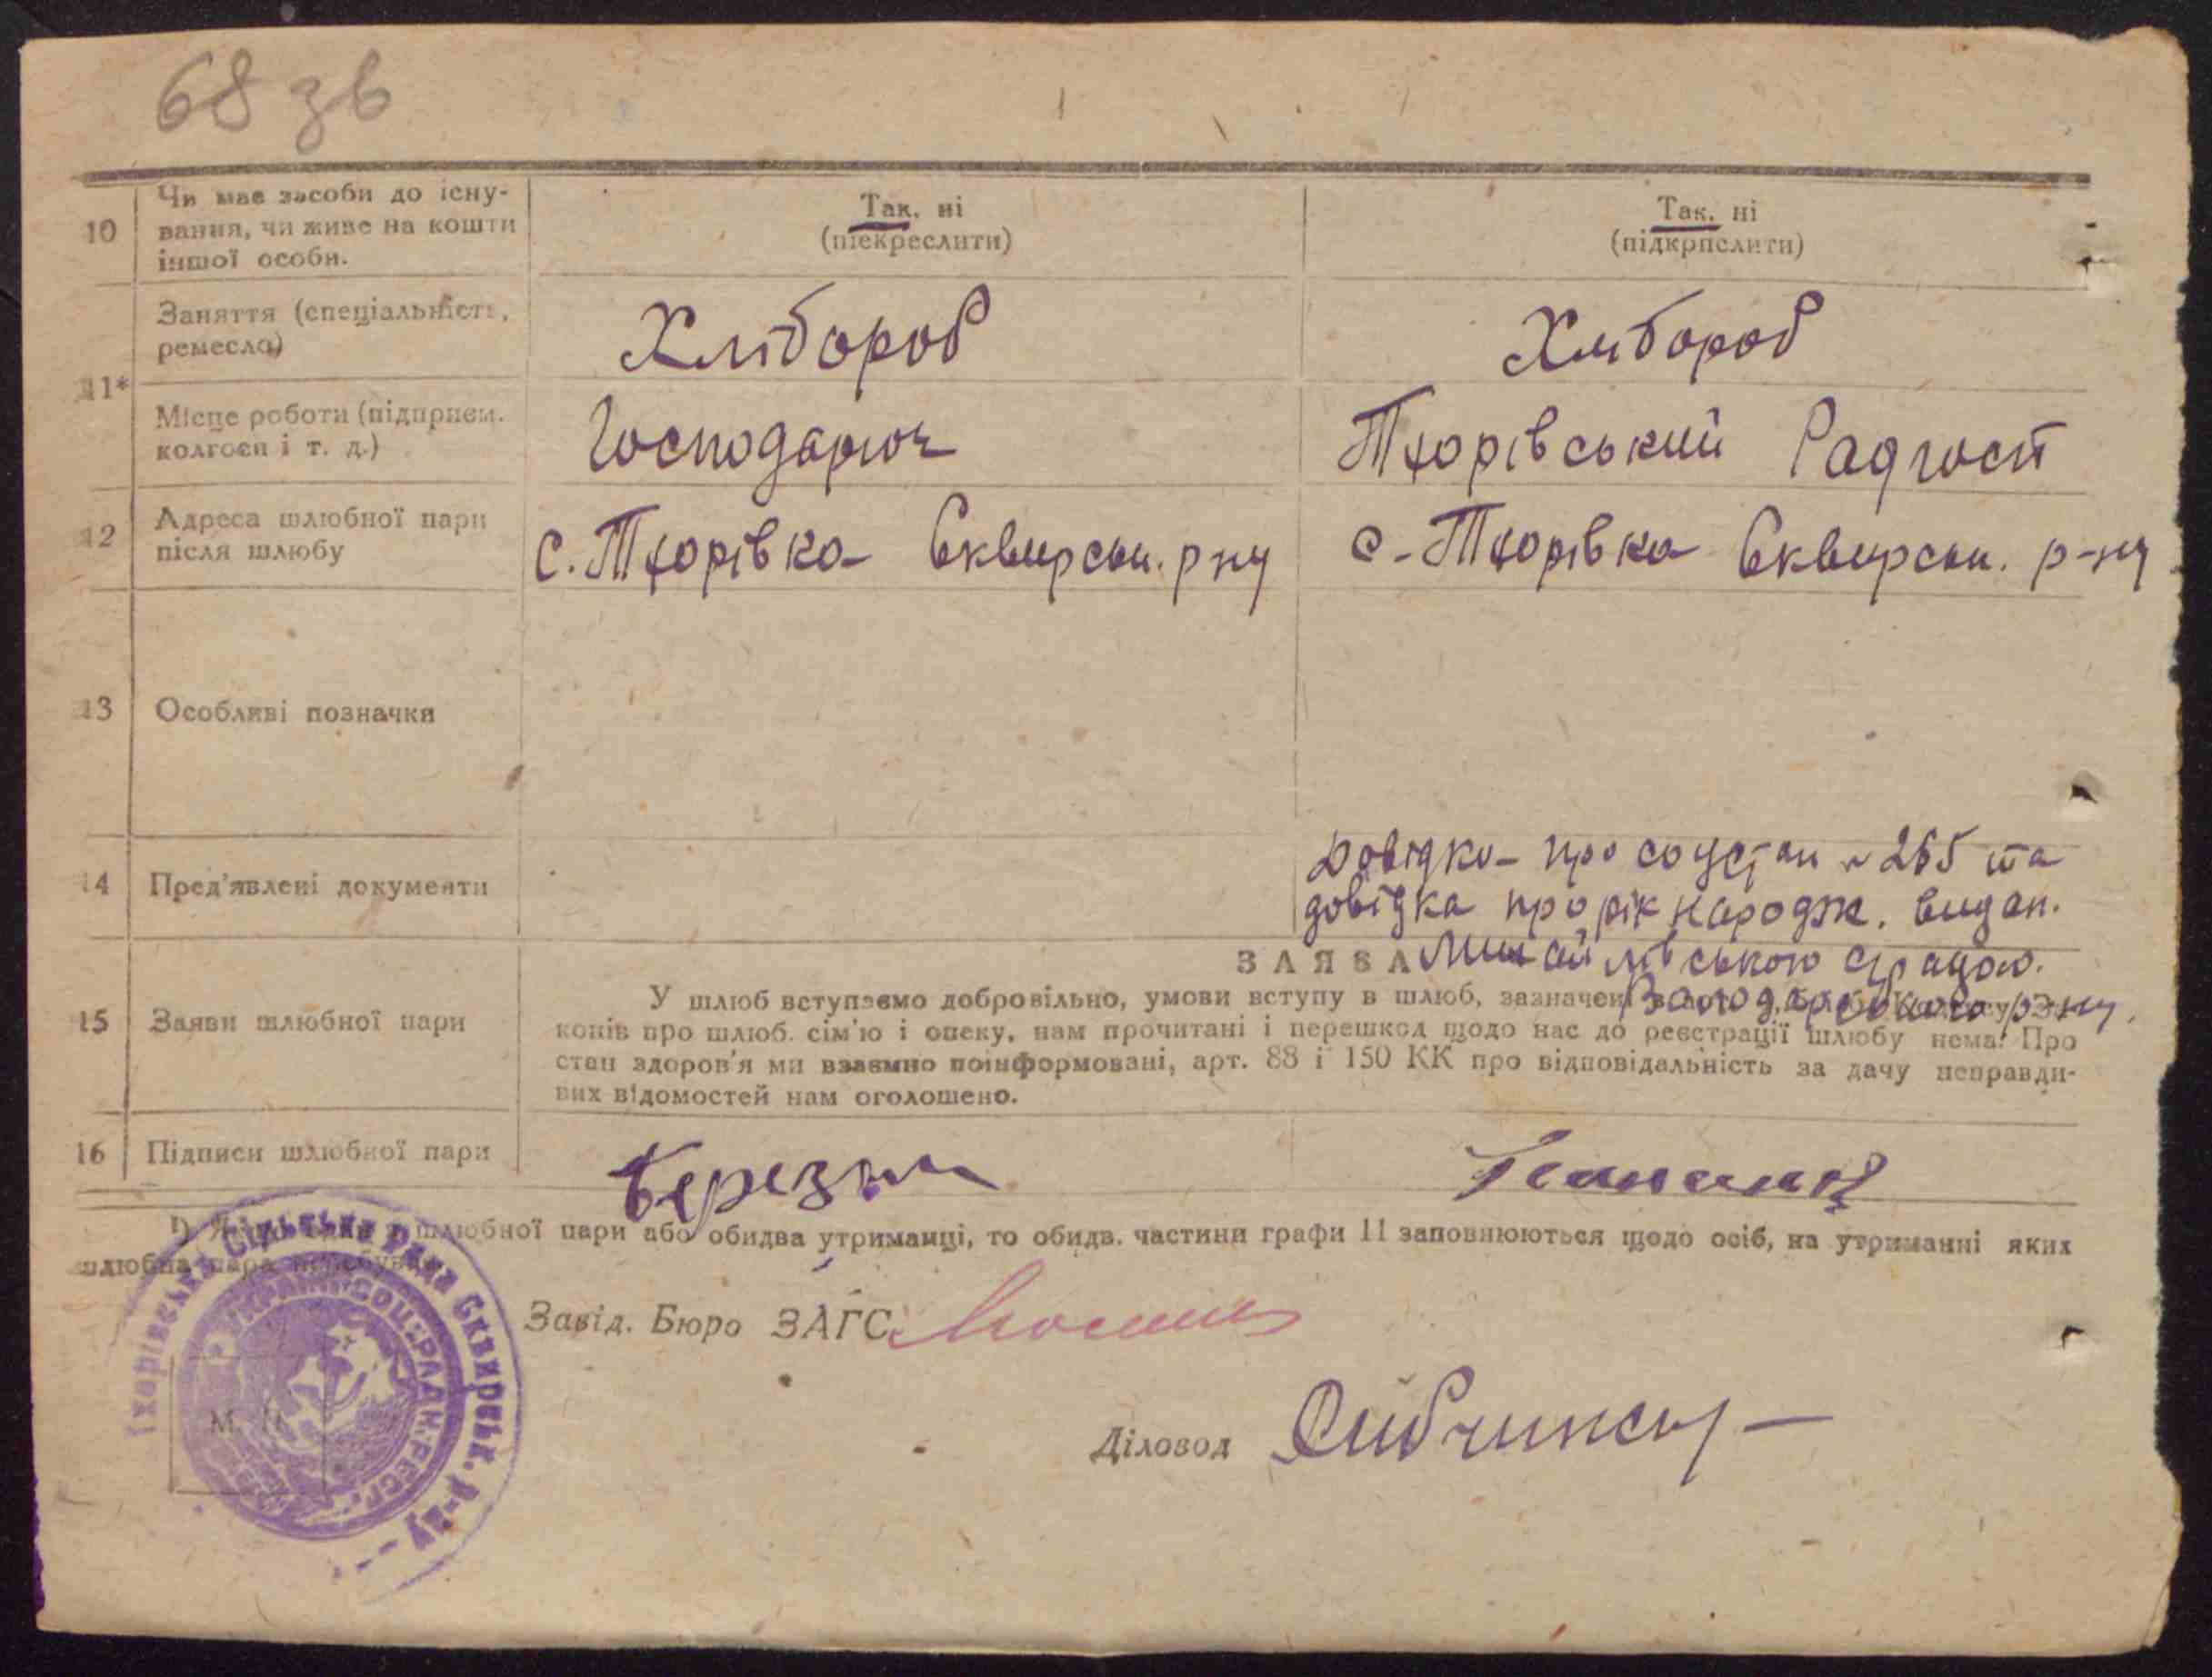 68 зв
10 Чи має засоби до існу-
вання, чи живе на кошти
іншої особи.
Так, ні
(піекреслити)
Так, ні
(підкрпслити)
11*
Заняття (спеціальність,
ремесло)
Хлібороб
Хлібороб
Місце роботи (підприєм.
колгосп і т. д.)
Господарюч
Тхорівський Радгосп
12 Адреса шлюбної пари
після шлюбу
с. Тхорівка Сквирськ. р ну
с-Тхорівка Сквирськ. р-ну
13 Особливі позначки
14 Пред'явлені документи
Довідка про соцстан № 265 та
довідка про рік народж. видан.
Михайлівською с/радою.
Володарського р-ну.
ЗАЯВА
15 Заяви шлюбної пари
У шлюб вступаємо добровільно, умови вступу в шлюб, зазначені
конів про шлюб. сім'ю і опеку, нам прочитані і перешкод щодо нас до реєстрації шлюбу нема. Про
стан здоров'я ми взаємно поінформовані, арт. 88 і 150 КК про відповідальність за дачу неправди-
вих відомостей нам оголошено.
16 Підписи шлюбної пари
1) шлюбної пари або обидва утриманці, то обидв. частини графи 11 заповнюються щодо осіб, на утриманні яких
шлюбна пара
Завід. Бюро ЗАГС
Діловод
М. П.
Тхорівська Сільська Рада Сквирськ. р-ну
УКРАЇН. СОЦ. РАДЯН. РЕСП.